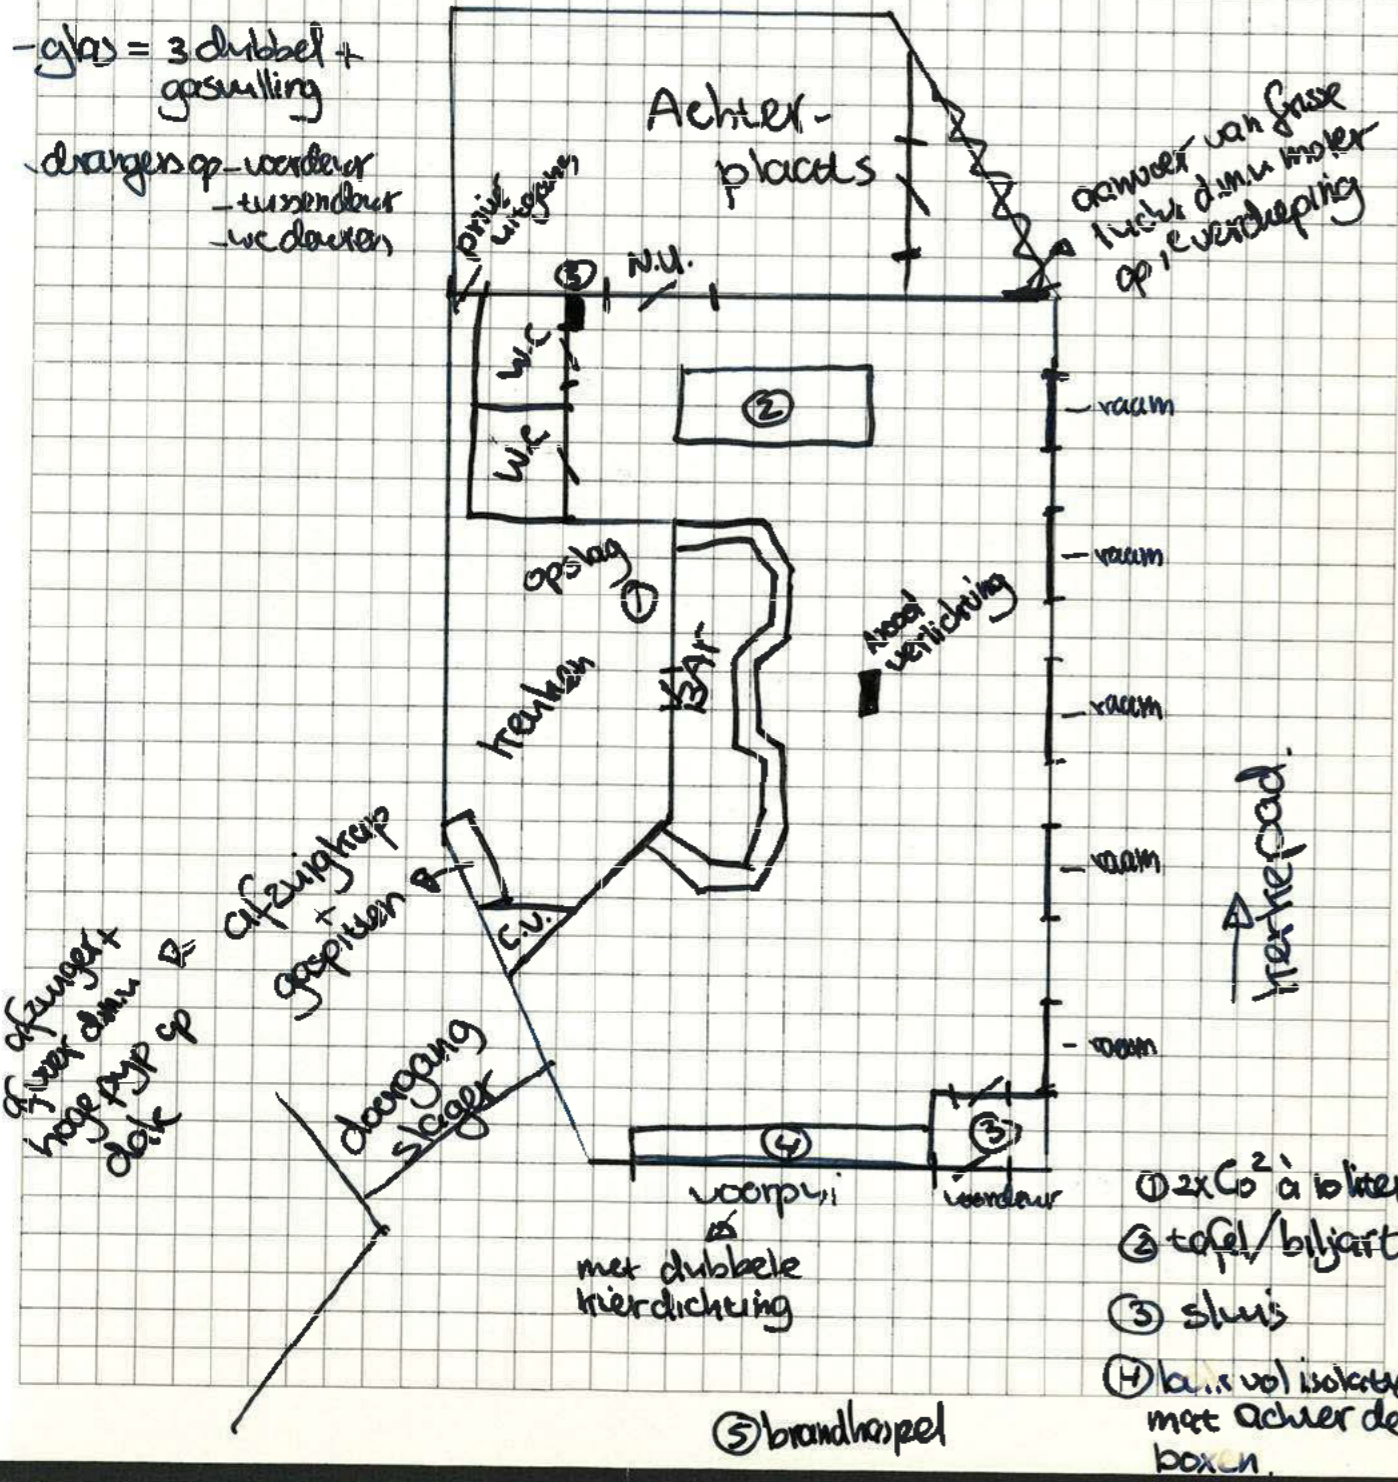 - glas = 3 dubbel +
gasvulling
- drangers op - voordeur
- tussendeur
- wc deuren
Achter-
plaats
aanvoer van frisse
lucht d.m.v moter
op 1e verdieping
privé
uitgang
5
N.U.
W.C
W.C
2
raam
raam
raam
raam
raam
opslag
1
keuken
BAr
nood
verlichting
kerkepad.
afzuigkap
+
gaspitten
afzuiger +
afvoer d.m.v
hoge pyp op
dak
C.V.
doorgang
slager
4
3
voorpui
voordeur
met dubbele
kierdichting
① 2x Co² à 10 liter
② tafel/biljart
③ sluis
④ vol isolatie
met achter de
boxen.
⑤ brandhaspel